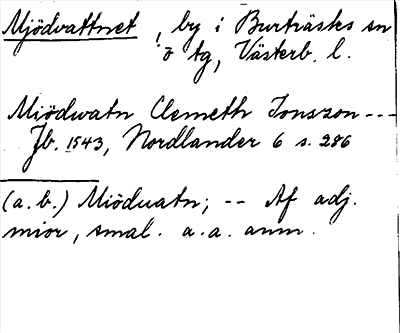 Mjödvattnet, by i Burträsks sn
o tg, Västerb. l.
Miödwatn Clemeth Jonszon ---
Jb. 1543, Nordlander 6 s. 286
(a. b.) Miöduatn; -- Af adj.
mior, smal. a. a. anm.